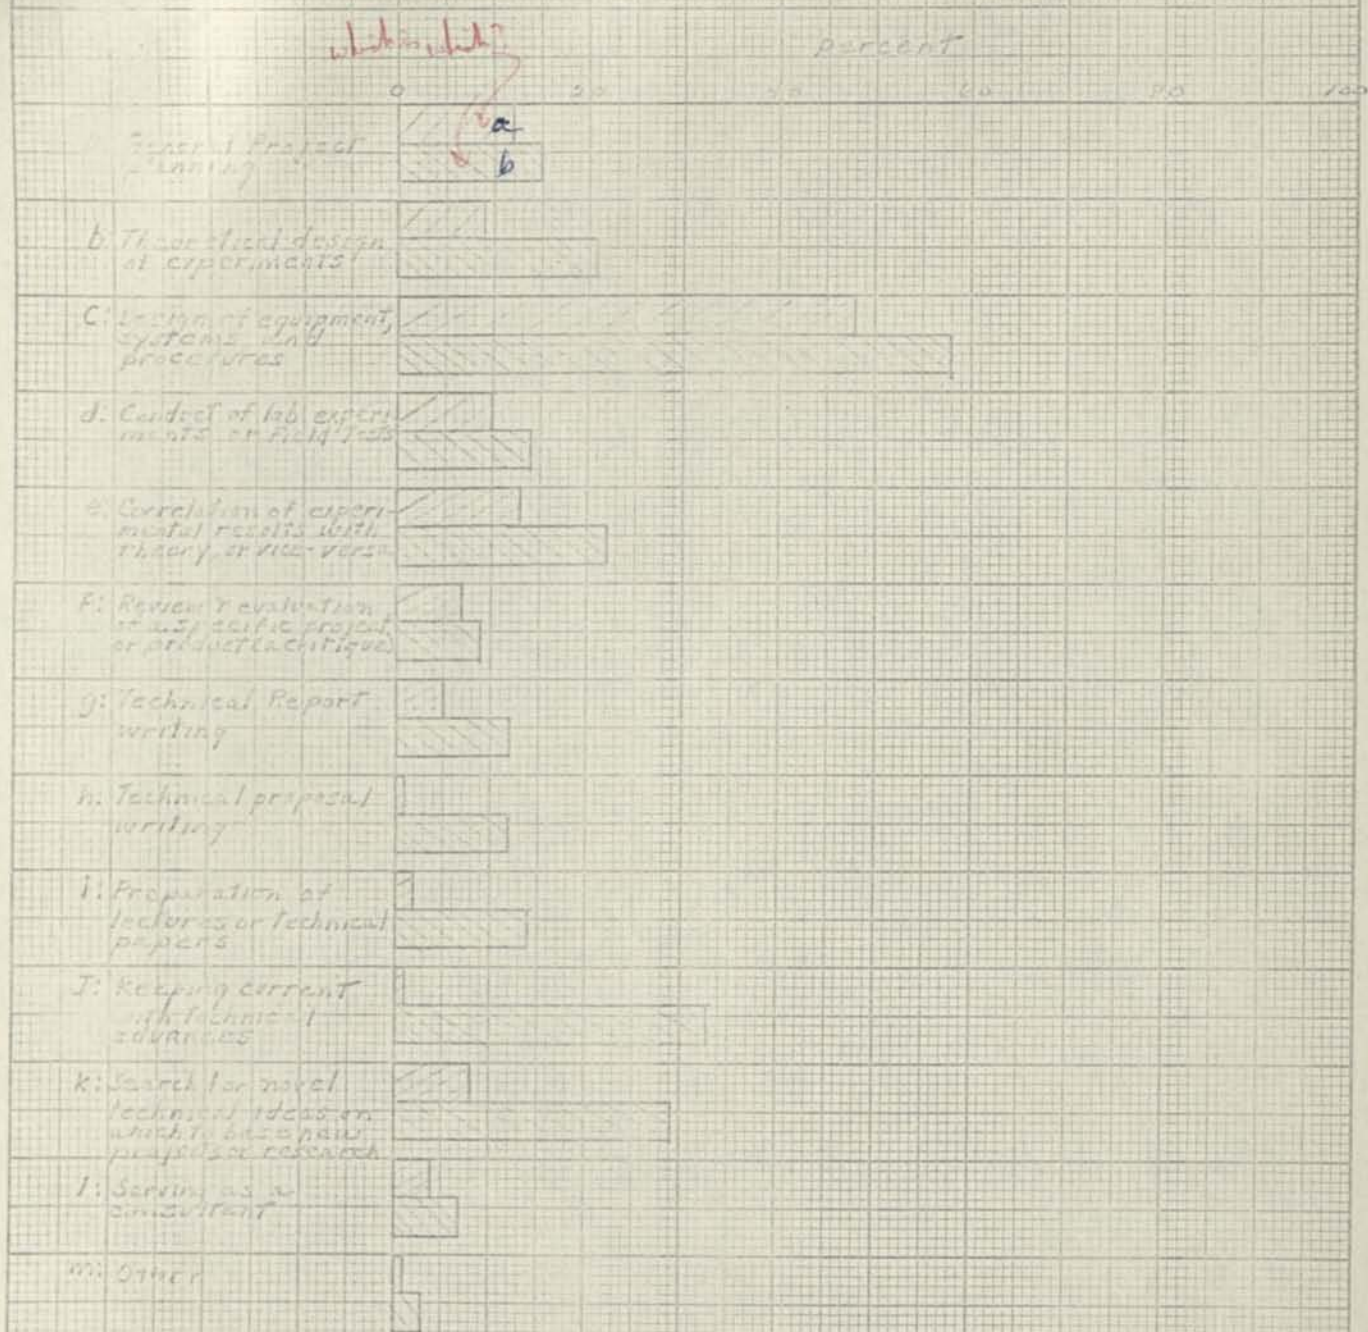 what is what?
percent
0 20 40 60 80 100
a
General Project
Planning
b
b: Theoretical design
of experiments
C: Design of equipment,
systems and
procedures
d: Conduct of lab experi-
ments or field tests
e: Correlation of experi-
mental results with
theory, or vice-versa
f: Review & evaluation
of a specific project
or product (a critique)
g: Technical Report
writing
h: Technical proposal
writing
i: Preparation of
lectures or technical
papers
J: Keeping current
with technical
advances
k: Search for novel
technical ideas on
which to base new
projects or research
l: Serving as a
consultant
m: Other